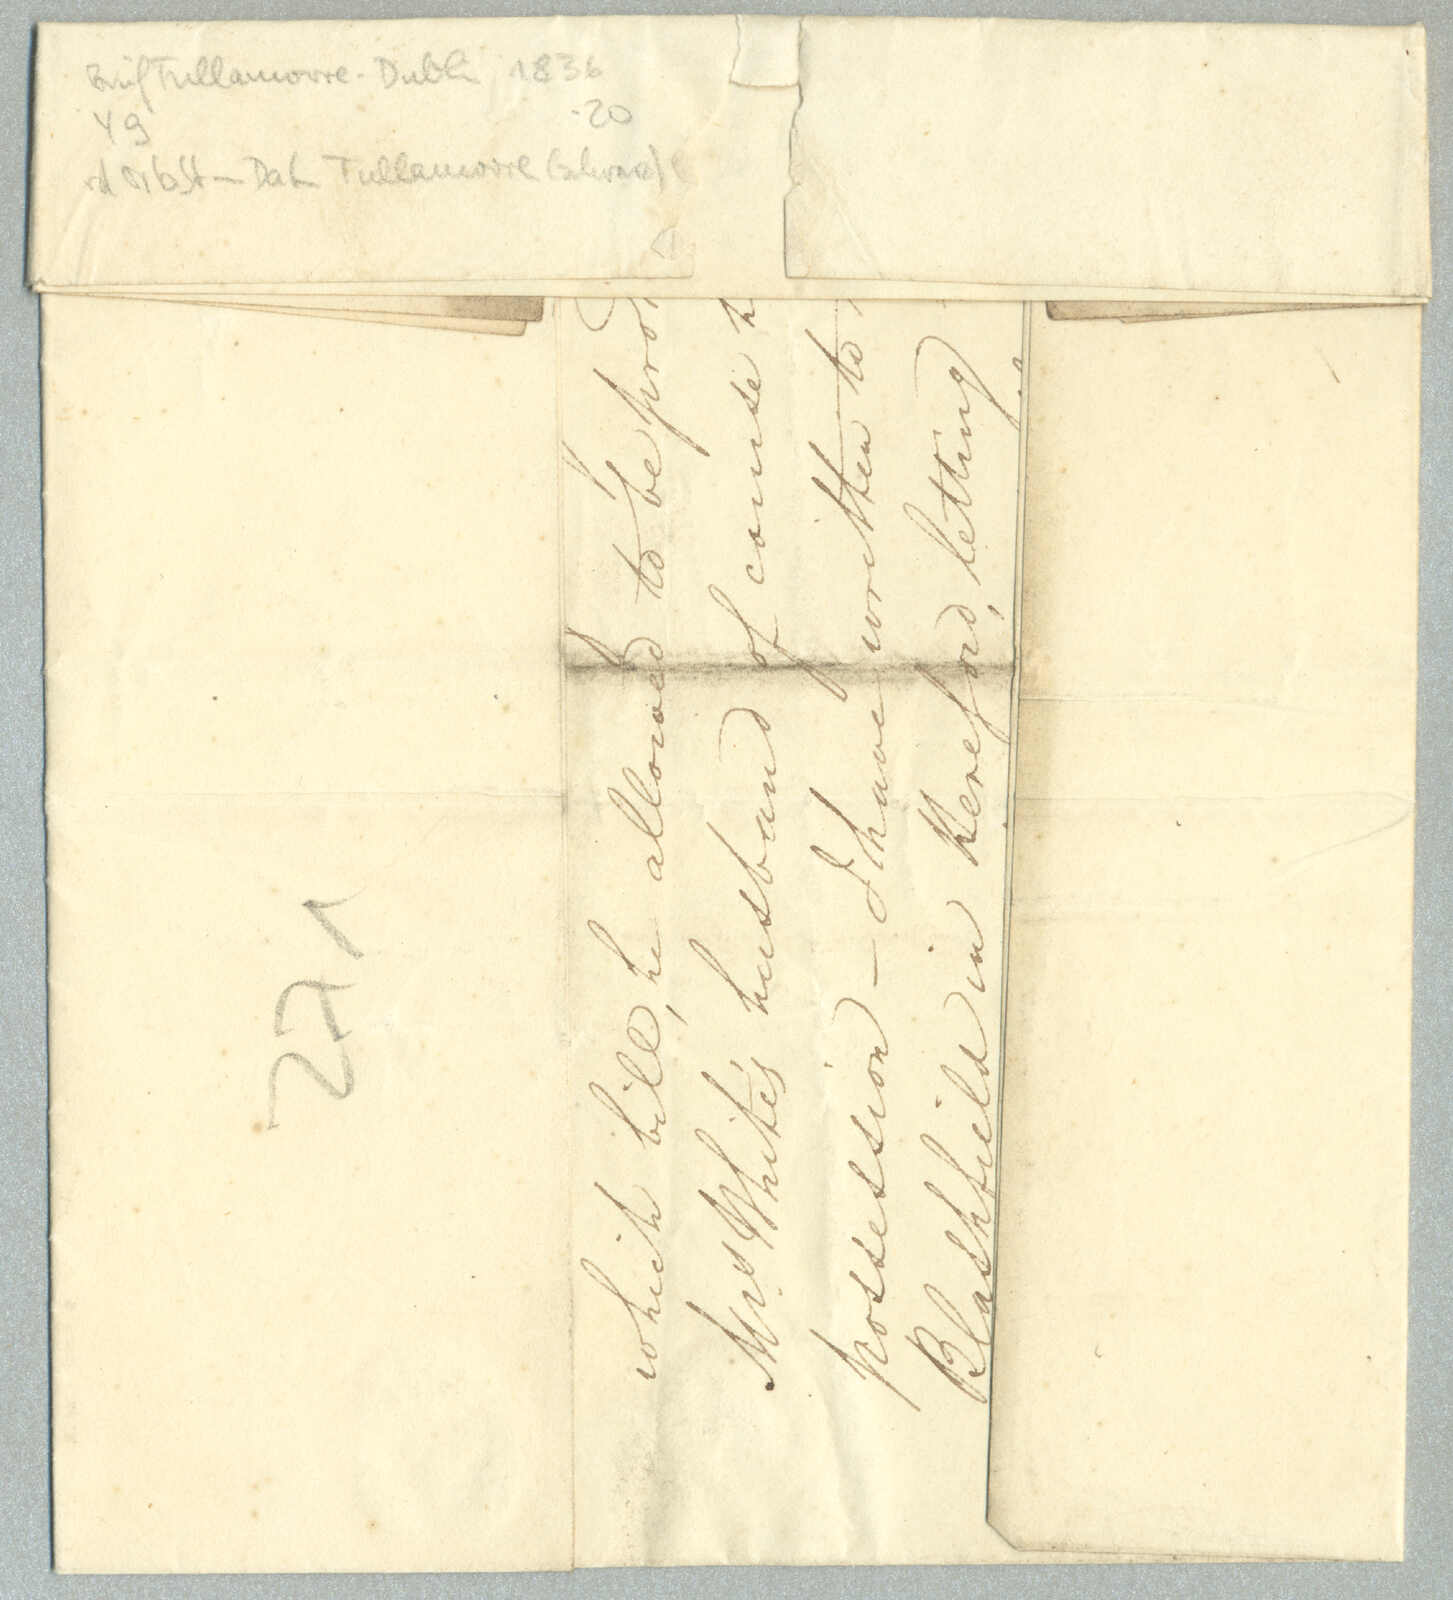 Brief Tullamoore - Dublin 1836
Y9 -20
Ortsst - Dat Tullamoore (schwarz)
271
which bill, he allowed to be pro
Mrs White's husband of course h
possession — I have written to
Blashfield in Hereford, letting